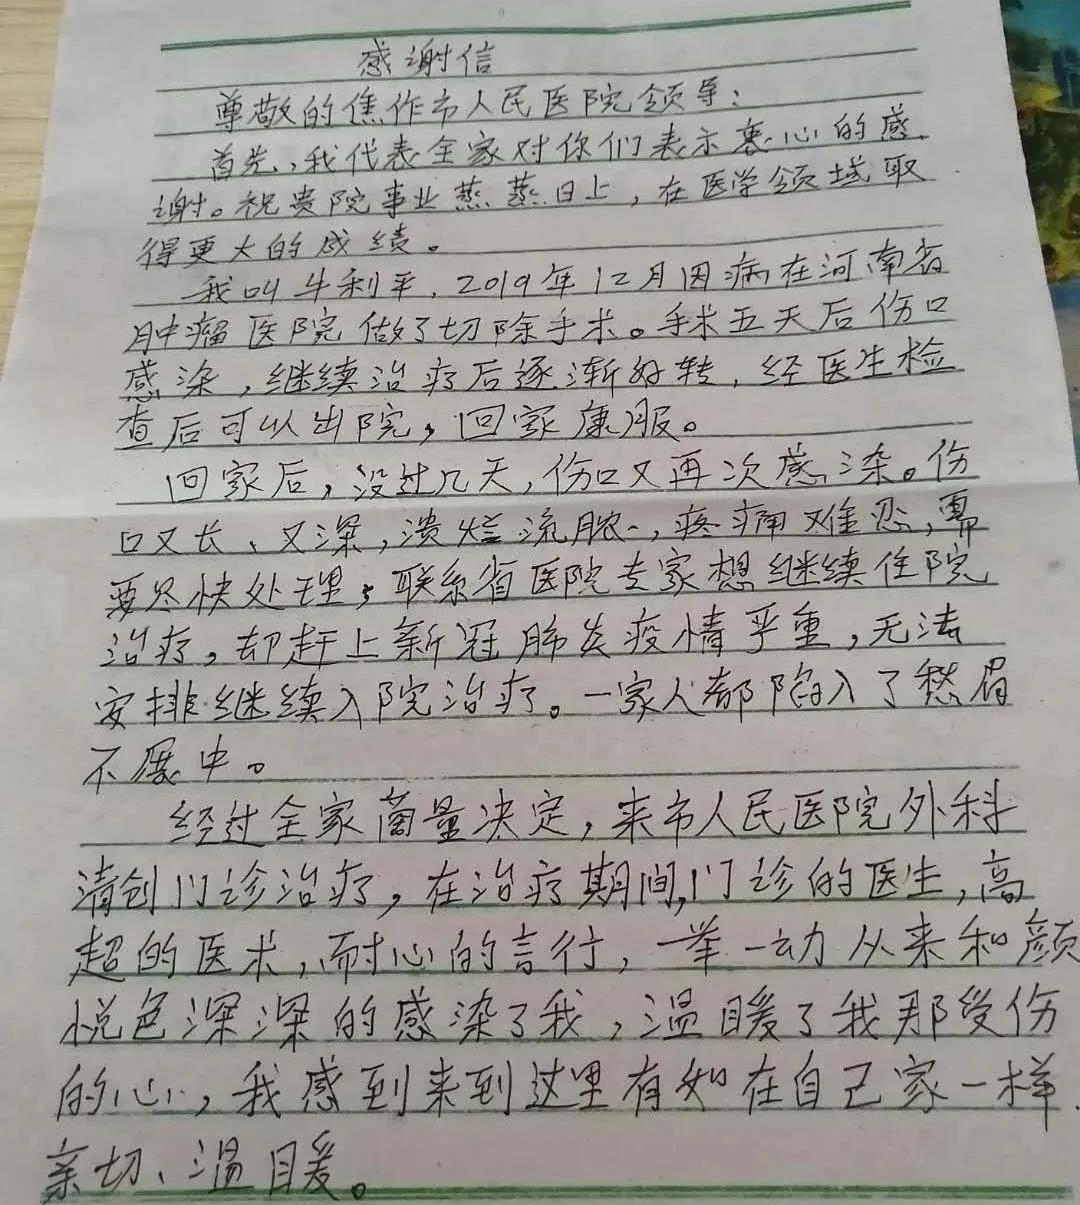 感谢信
尊敬的焦作市人民医院领导：
首先，我代表全家对你们表示衷心的感
谢。祝贵院事业蒸蒸日上，在医学领域取
得更大的成绩。
我叫牛利平，2019年12月因病在河南省
肿瘤医院做了切除手术。手术五天后伤口
感染，继续治疗后逐渐好转，经医生检
查后可以出院，回家康服。
回家后，没过几天，伤口又再次感染。伤
口又长、又深，溃烂流脓，疼痛难忍，需
要尽快处理，联系省医院专家想继续住院
治疗，却赶上新冠肺炎疫情严重，无法
安排继续入院治疗。一家人都陷入了愁眉
不展中。
经过全家商量决定，来市人民医院外科
清创门诊治疗，在治疗期间，门诊的医生，高
超的医术，耐心的言行，一举一动从来和颜
悦色深深的感染了我，温暖了我那受伤
的心，我感到来到这里有如在自己家一样
亲切、温暖。